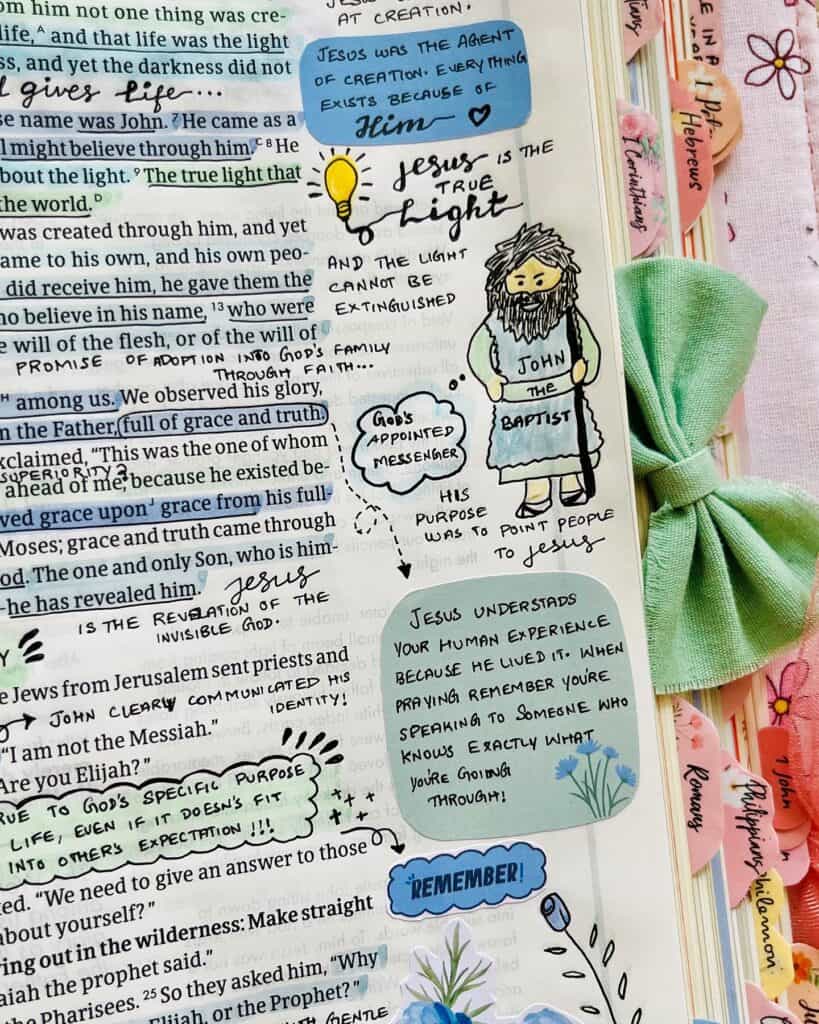 om him not one thing was cre-
life,ᴬ and that life was the light
ss, and yet the darkness did not
gives life...
se name was John. 7 He came as a
l might believe through him.ᶜ 8 He
bout the light. 9 The true light that
the world.ᴰ
was created through him, and yet
ame to his own, and his own peo-
did receive him, he gave them the
ho believe in his name, 13 who were
e will of the flesh, or of the will of
PROMISE OF ADOPTION INTO GOD'S FAMILY
THROUGH FAITH...
ᴴ among us. We observed his glory,
n the Father, full of grace and truth.
xclaimed, “This was the one of whom
SUPERIORITY?
ahead of me, because he existed be-
ved grace uponᴶ grace from his full-
Moses; grace and truth came through
od. The one and only Son, who is him-
—he has revealed him.
Jesus
IS THE REVELATION OF THE
INVISIBLE GOD.
Y
e Jews from Jerusalem sent priests and
JOHN CLEARLY COMMUNICATED HIS
IDENTITY!
“I am not the Messiah.”
Are you Elijah?”
RUE TO GOD'S SPECIFIC PURPOSE
LIFE, EVEN IF IT DOESN'S FIT
INTO OTHER'S EXPECTATION !!!
ked. “We need to give an answer to those
about yourself?”
ring out in the wilderness: Make straight
aiah the prophet said.”
the Pharisees. 25 So they asked him, “Why
Elijah, or the Prophet?”
GENTLE
AT CREATION.
JESUS WAS THE AGENT
OF CREATION. EVERYTHING
EXISTS BECAUSE OF
Him ♡
Jesus IS THE
TRUE
Light
AND THE LIGHT
CANNOT BE
EXTINGUISHED
JOHN
THE
BAPTIST
GOD'S
APPOINTED
MESSENGER
HIS
PURPOSE
WAS TO POINT PEOPLE
TO Jesus
JESUS UNDERSTADS
YOUR HUMAN EXPERIENCE
BECAUSE HE LIVED IT. WHEN
PRAYING REMEMBER YOU'RE
SPEAKING TO SOMEONE WHO
KNOWS EXACTLY WHAT
YOU'RE GOING
THROUGH!
REMEMBER!
1 Corinthians
Hebrews
1 Pet.
Romans
Philippians
1 John
hilemon